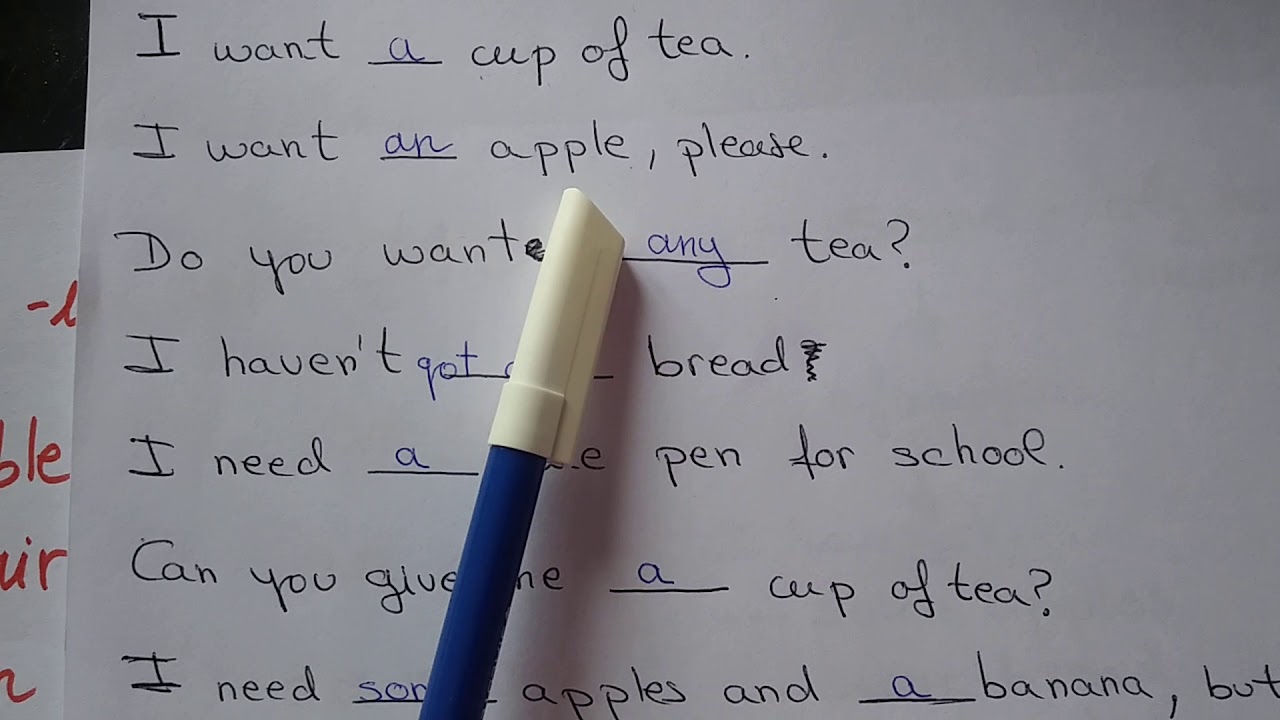 I want a cup of tea.
I want an apple, please.
Do you want any tea?
I haven't got bread
I need a pen for school.
Can you give me a cup of tea?
I need some apples and a banana, but
-l
ble
uir